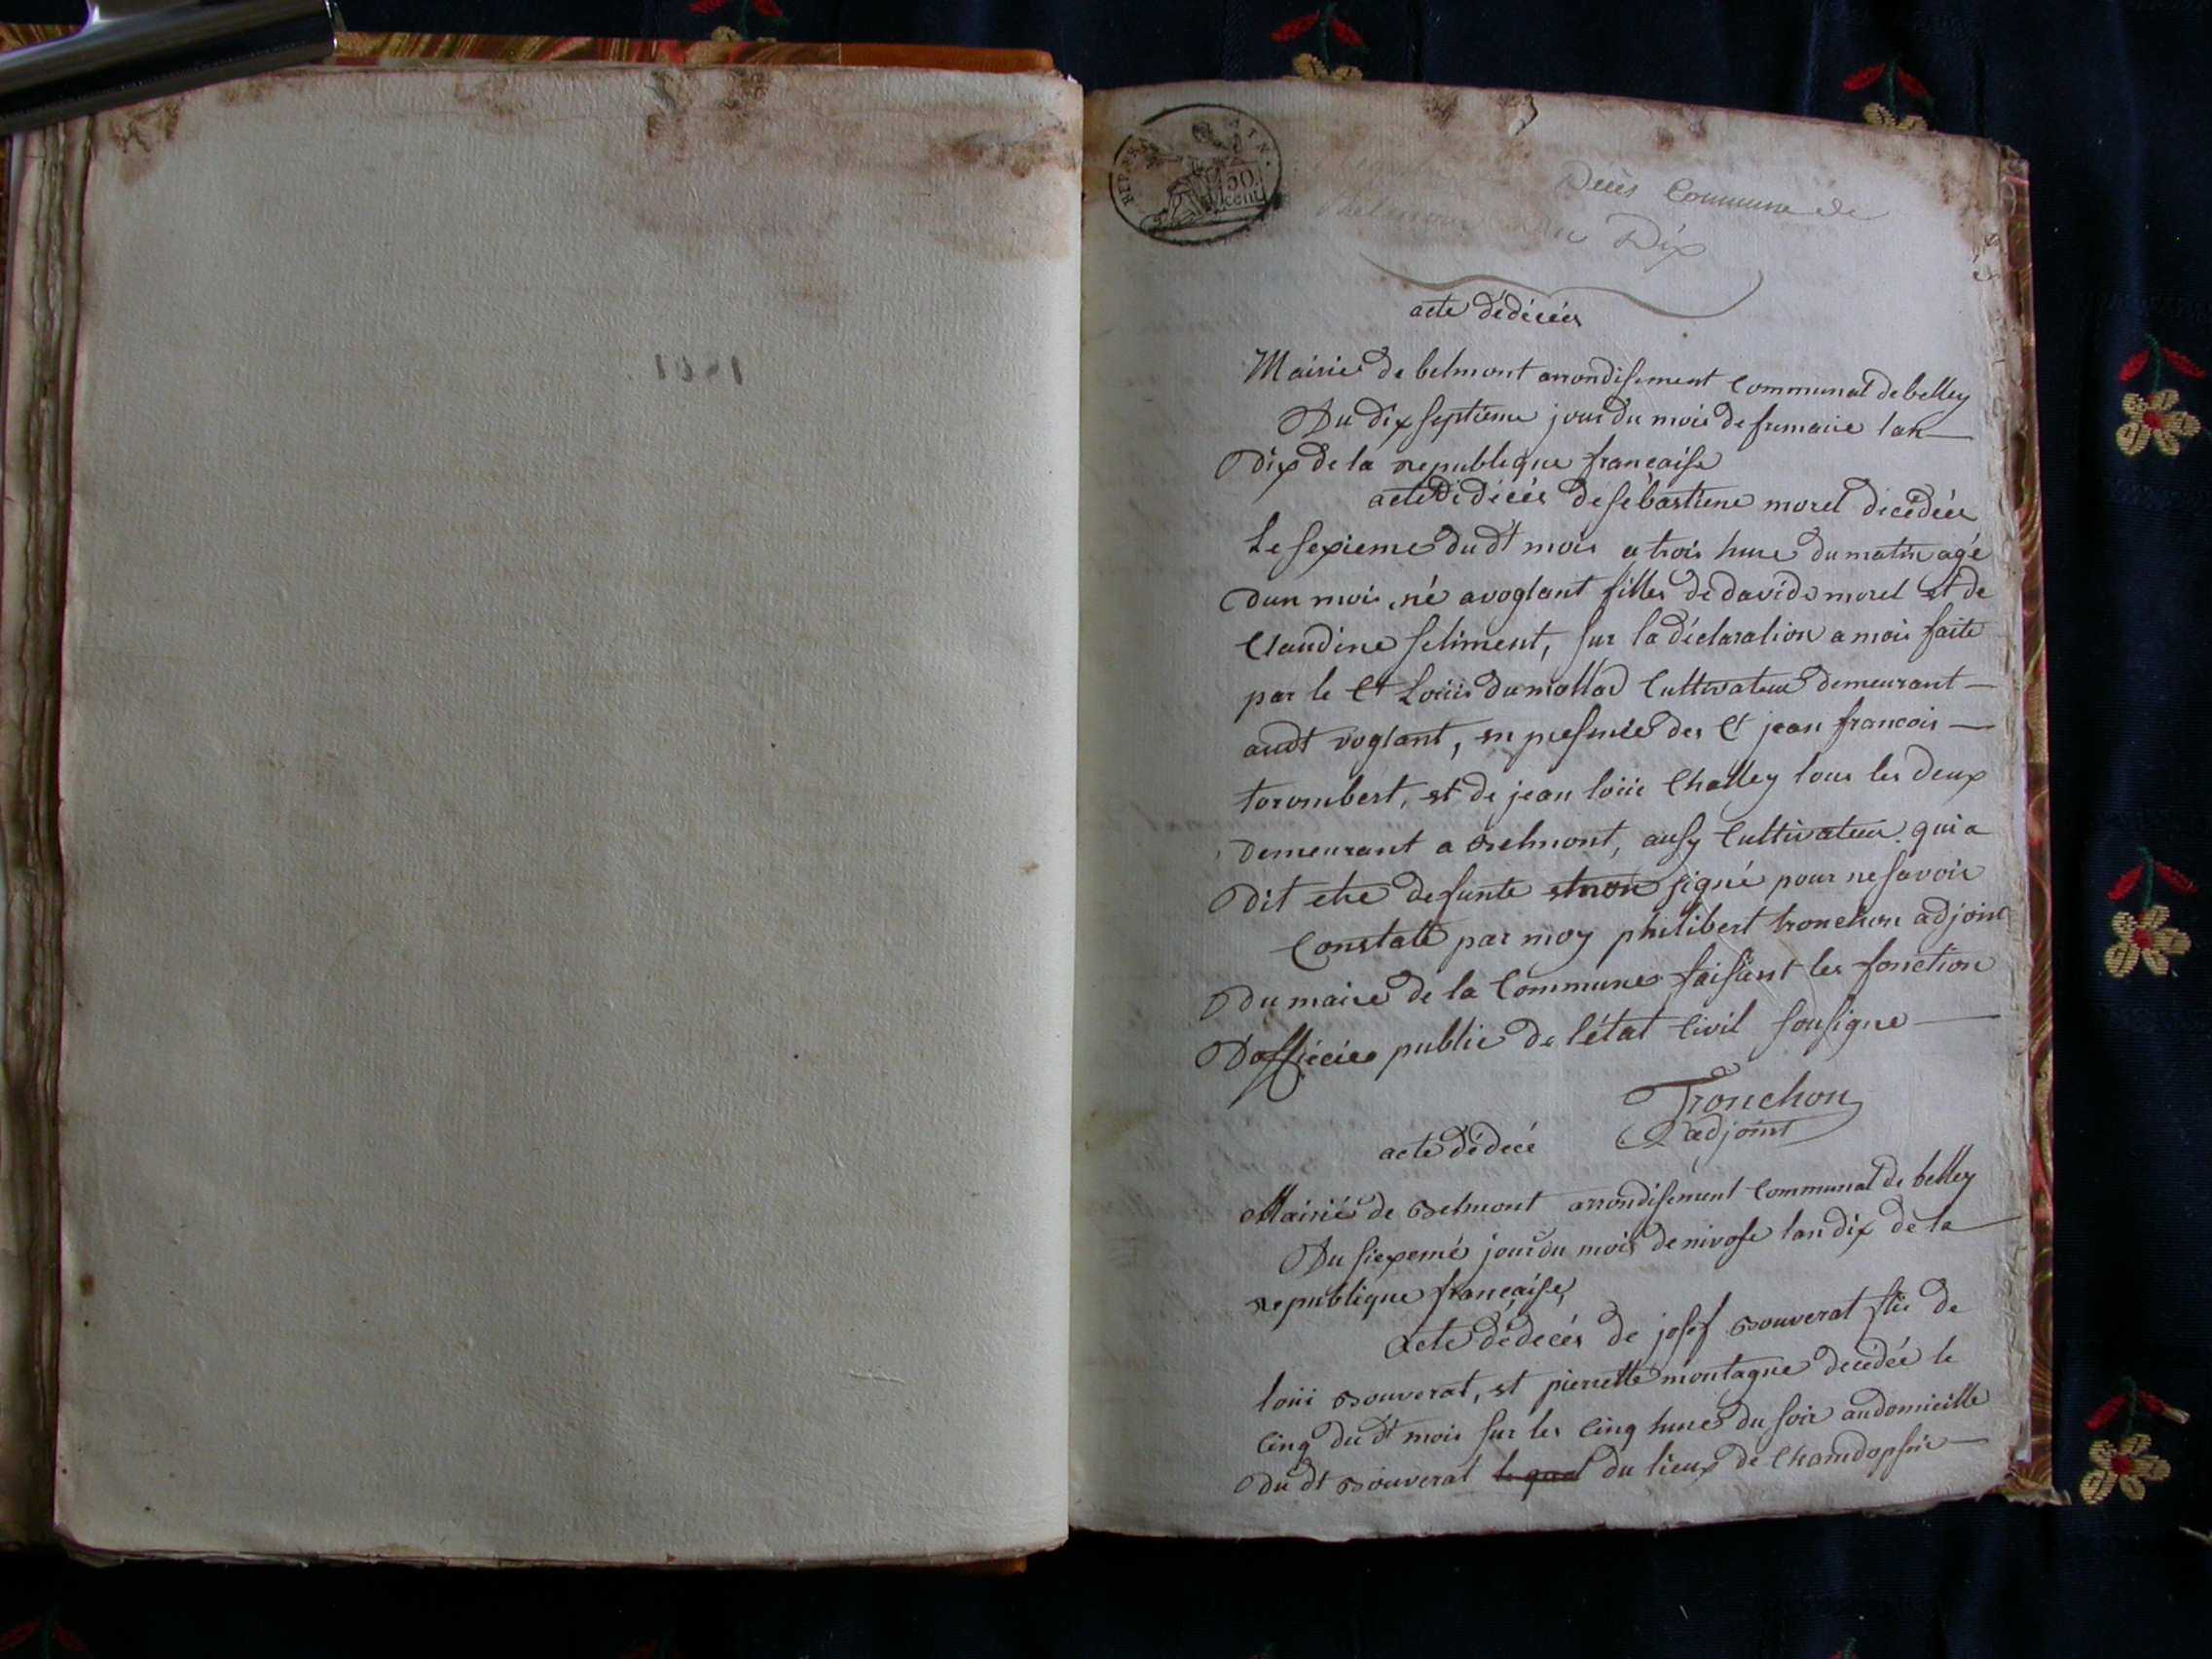 50
cent
Décès Commune de
Dix
acte dédécés
Mairie de belmont arrondisement Communal de belley
Du dix septieme jour du mois de frimaire lan
Dix de la republique francaise
acte dédécés de sébastiene morel décédée
Le sexieme dudt mois a trois hure du matin agé
dun mois, né a voglant filles de david morel et de
Claudine feliment, sur la déclaration a moi faite
par le Ct Loüis dumollard Cultivateur demeurant
audt voglant, en presence des Ct jean francois
torombert, et de jean loüis Challey tous les deux
demeurant a Belmont, ausy Cultivateur qui a
dit etre defunte et non signé pour ne savoir
Constaté par moy philibert tronchon adjoint
Du maire de la Commune faisant les fonction
Dofficier public de l'état Civil sousigne
Tronchon
adjoint
acte dédecé
Mairie de Belmont arrondisement Communal de belley
Du siexemé jour du mois de nivose lan dix de la
republique française,
Acte dédecés de josef Bouverat fils de
loüis Bouverat, et pierrette montagne decedée le
Cinq dudt mois sur les Cinq hures du soir au domicille
du dt Bouverat le quel du lieux de